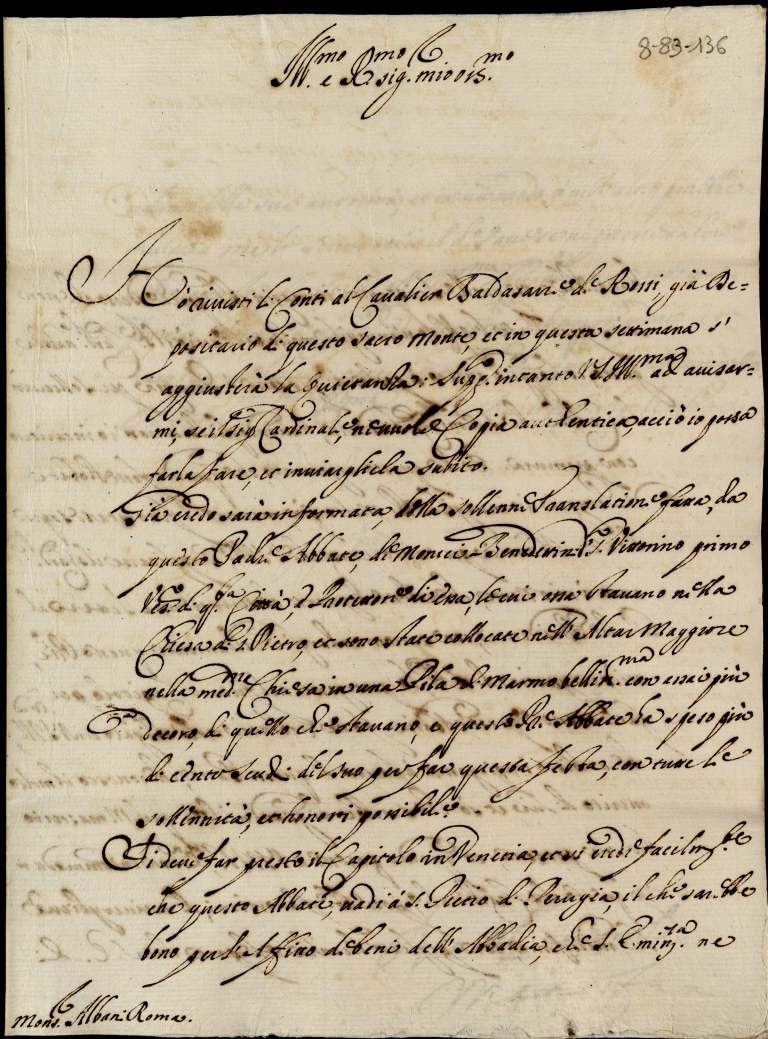 8-83-136
Ill.mo e R.mo sig. mio oss.mo
Hò rivisti li Conti al Cavalier Baldasarre de Rossi, già De=
positario di questo sacro Monte, et in questa settimana s'
aggiusterà la Quietanza: Supp.co intanto V.S. Ill.ma ad avisar=
mi, se il sig.r Cardinale, ne vuole Copia autentica, acciò io possa
farla fare, et inviargliela subito.
Già credo sarà informata, della sollenne Translatione fatta, da
questo Padre Abbate, de Monici Benedettini di S. Vittorino primo
Ves.o di q.sta Città, e Protettore di essa, le cui ossa stavano nella
Chiesa di S. Pietro, et sono state collocate nell'Altar Maggiore
nella med.me Chiesa in una Pila di Marmo bellis.ma con assai più
decoro, di quello che stavano, e questo P.re Abbate ha speso più
di cento scudi del suo per far questa festa, con tutte le
sollennità, et honori possibile.
Si deve far presto il Capitolo in Venetia, et si crede facilm.te
che questo Abbate, vadi à S. Pietro di Perugia, il che sarebbe
bono per l'Affitto de beni dell'Abbadia, che S. Emin.za ne
Mons.r Albani Roma.